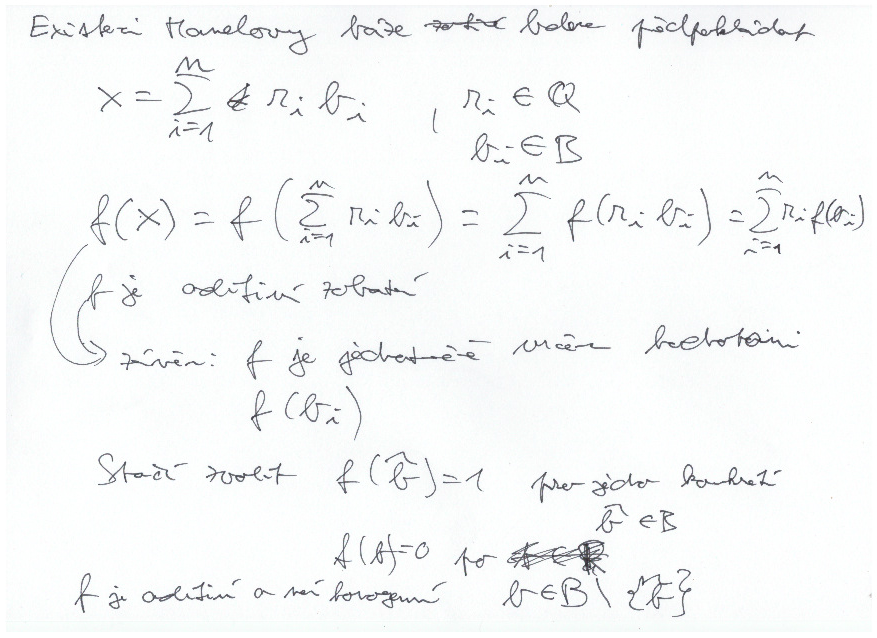 Existenci Hamelovy báze budeme předpokládat
x = \sum_{i=1}^{n} r_i b_i , r_i ∈ Q
b_i ∈ B
f(x) = f(\sum_{i=1}^{n} r_i b_i) = \sum_{i=1}^{n} f(r_i b_i) = \sum_{i=1}^{n} r_i f(b_i)
f je aditivní zobrazení
závěr: f je jednoznačně určena hodnotami
f(b_i)
Stačí zvolit f(\hat{b}) = 1 pro jedno konkrétní
\hat{b} ∈ B
f(b) = 0 pro
f je aditivní a není homogenní b ∈ B \ {\hat{b}}